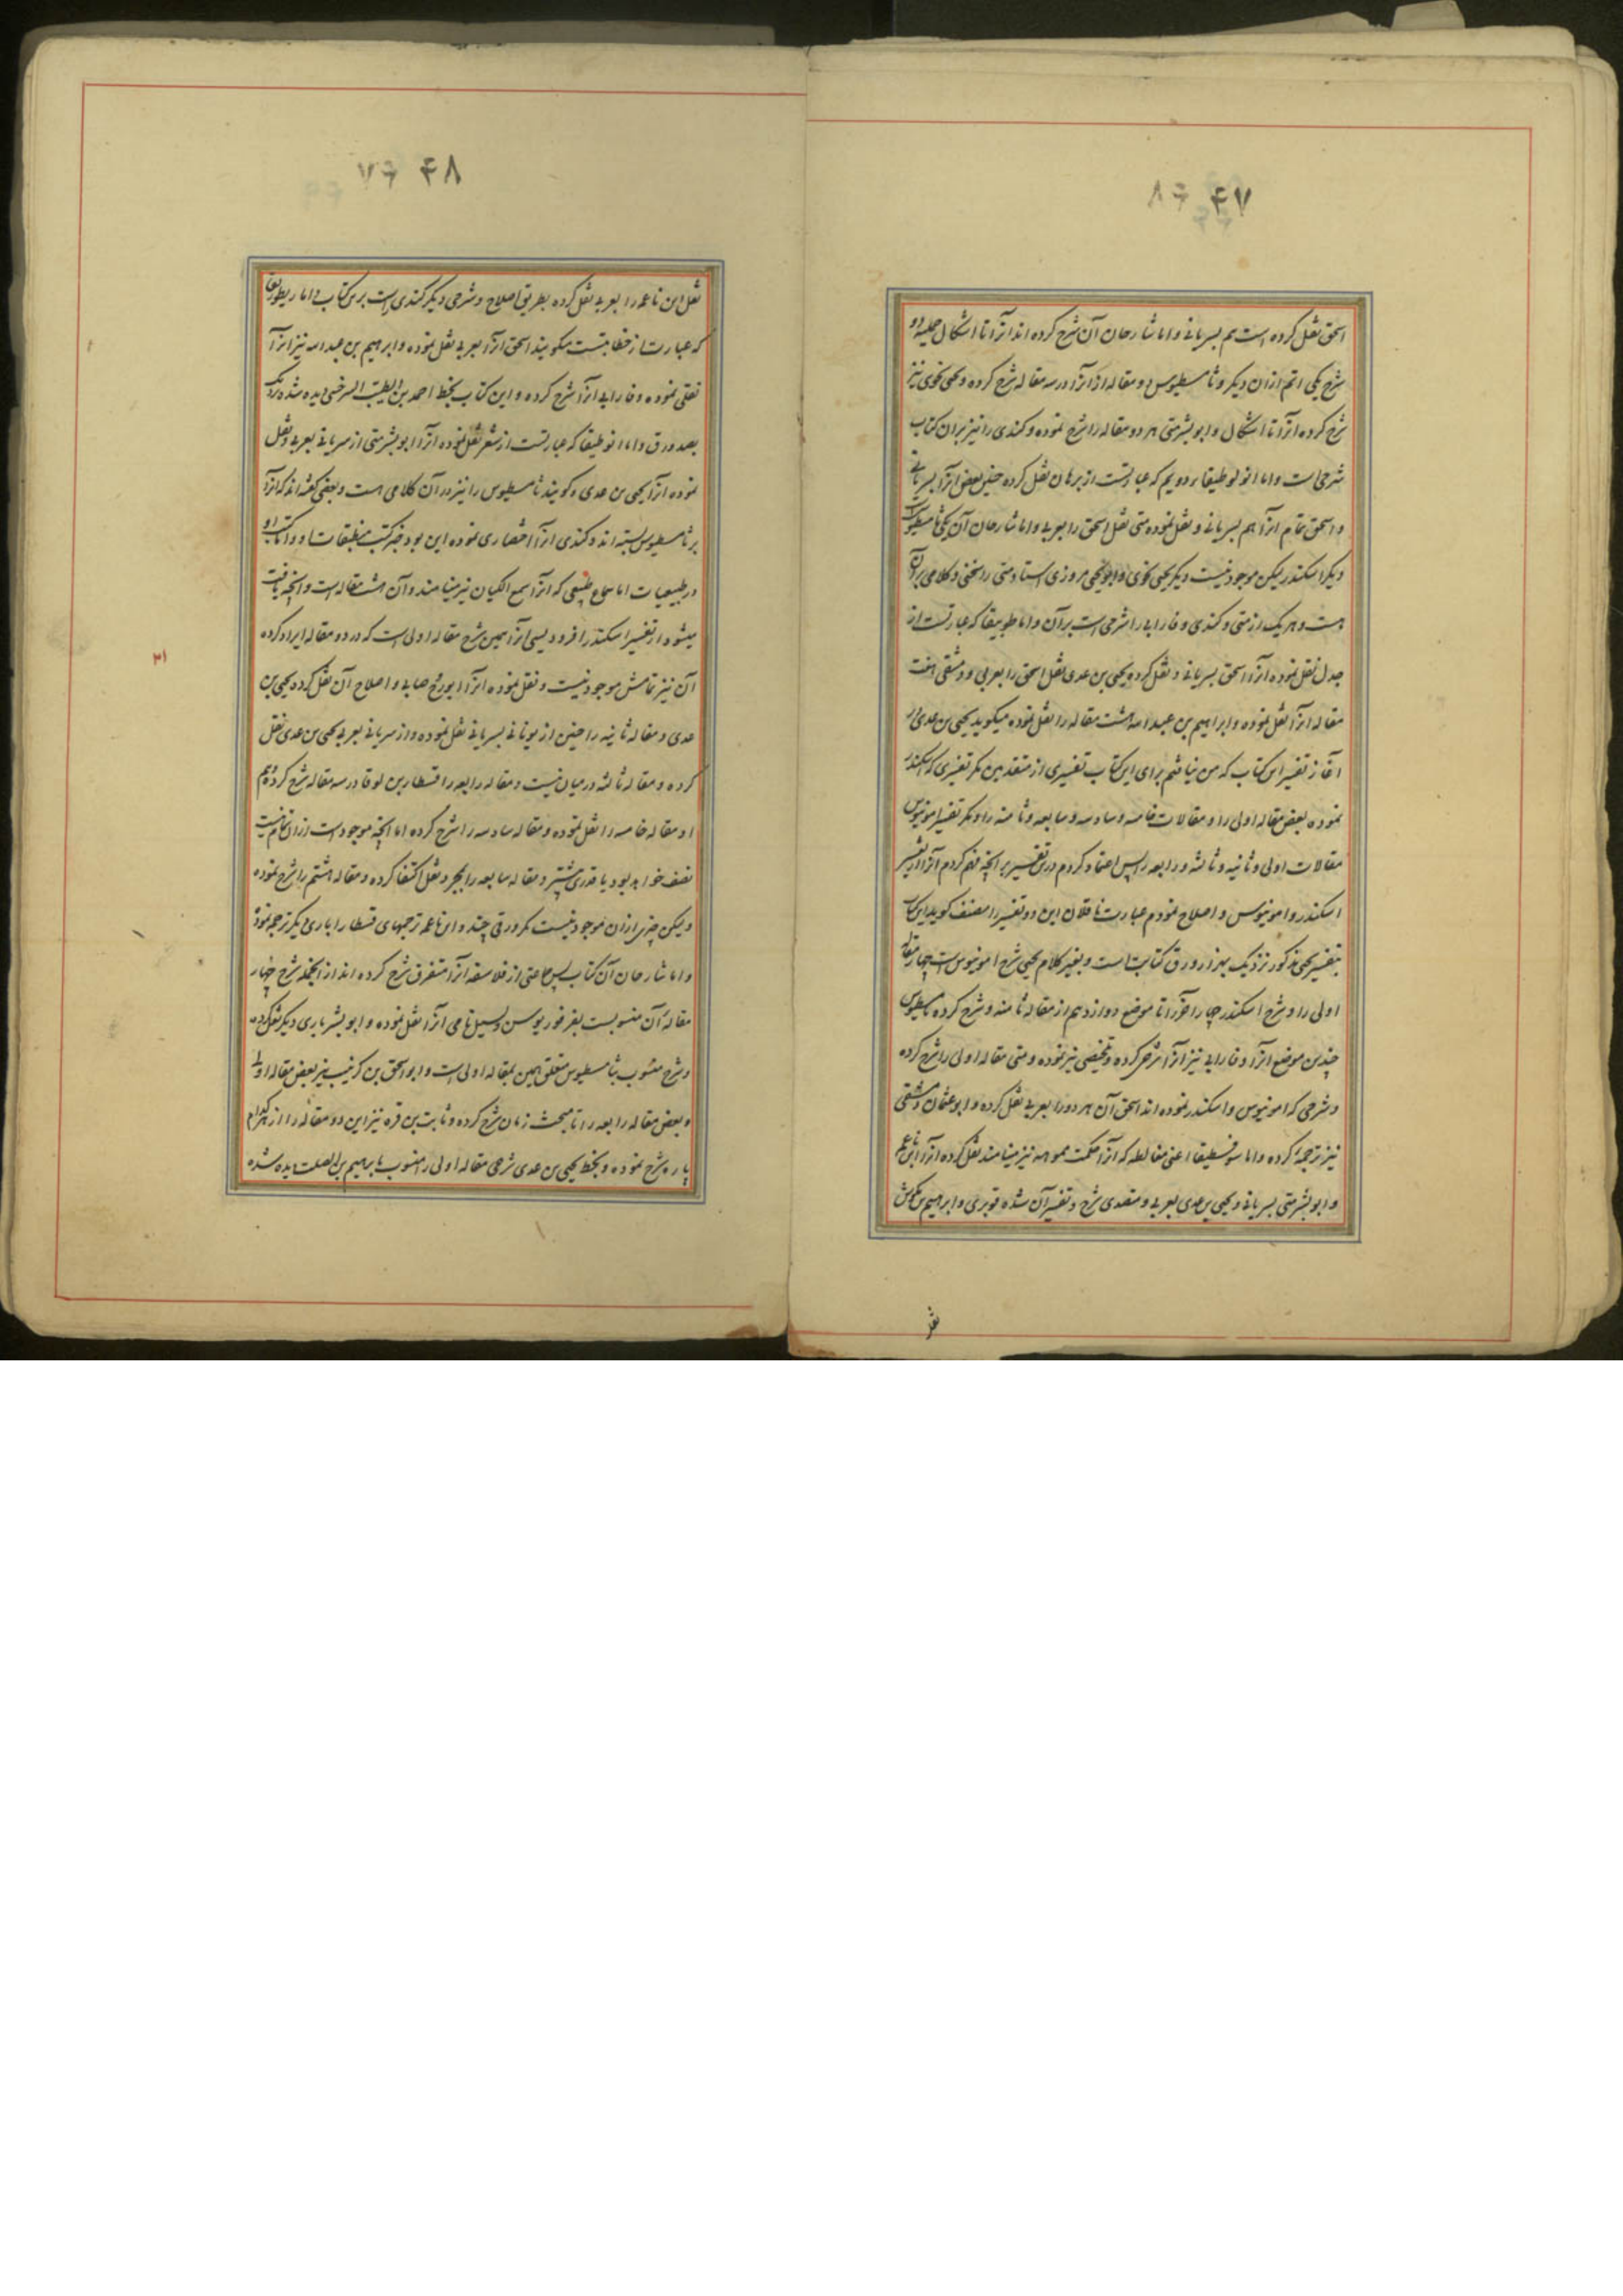 ۴۷ ۶۸
اسحق نقل کرده است هم بسریانی و اما شارحان آن شرح کرده اند آنرا تا اشکال حملیه دو
شرح یکی اتم از ان دیگر و ثامسطیوس دو مقاله از انرا در سه مقاله شرح کرده و یحیی نحوی نیز
شرح کرده انرا تا اشکال و ابو بشر متی هر دو مقاله را شرح نموده و کندی را نیز بران کتاب
شرحی است و اما انولوطیقاء دویم که عبارتست از برهان نقل کرده حنین بعض انرا بسریانی
و اسحق تمام انرا هم بسریانی و نقل نموده متی نقل اسحق را بعربی و اما شارحان آن یکی ثامسطیوس است
دیگر اسکندر لیکن موجود نیست دیگر یحیی نحوی و ابو یحیی مروزی استاد متی را سخنی و کلامی بر آن
هست و هر یک از متی و کندی و فارابی را شرحی است بر آن و اما طوبیقا که عبارتست از
جدل نقل نموده انرا اسحق بسریانی و نقل کرده یحیی بن عدی نقل اسحق را بعربی و دمشقی هفت
مقاله انرا نقل نموده و ابراهیم بن عبد الله هشت مقاله را نقل نموده میگوید یحیی بن عدی در
آغاز تفسیر این کتاب که من نیافتم برای این کتاب تفسیری از متقدمین مگر تفسیری که اسکندر
نموده بعض مقاله اولی را و مقالات خامسه و سادسه و سابعه و ثامنه را و مگر تفسیر امونیوس
مقالات اولی و ثانیه و ثالثه و رابعه را پس اعتماد کردم درین تفسیر بر انچه فهم کردم آنرا از تفسیر
اسکندر و امونیوس و اصلاح نمودم عبارت ناقلان این دو تفسیر را مصنف گوید این کتاب
بتفسیر یحیی مذکور نزدیک بهزار ورق کتابت است و بغیر کلام یحیی شرح امونیوس ست چهار مقاله
اولی را و شرح اسکندر چهار آخر را تا موضع دوازدهم از مقاله ثامنه و شرح کرده ثامسطیوس
چندین موضع انرا و فارابی نیز آنرا شرح کرده و تلخیصی نیز نموده و متی مقاله اولی را شرح کرده
و شرحی که امونیوس و اسکندر نموده اند اسحق آن هر دو را بعربی نقل کرده و ابو عثمان دمشقی
نیز ترجمه کرده و اما سوفسطیقا اعنی مغالطه که آنرا حکمت مموهه نیز مینامند نقل کرده انرا ابن ناعمه
و ابو بشر متی بسریانی و یحیی بن عدی بعربی و متصدی شرح و تفسیر آن شده قویری و ابراهیم بن بکوش
نقل
۴۸ ۶۷
نقل ابن ناعمه را بعربی نقل کرده بطریق اصلاح و شرحی دیگر کندی راست برین کتاب و اما ریطوریقا
که عبارت از خطابتست میگویند اسحق انرا بعربی نقل نموده و ابراهیم بن عبد الله نیز انرا
نقلی نموده و فارابی انرا شرح کرده و این کتاب بخط احمد بن الطیب السرخسی دیده شده نزدیک
بصد ورق و اما انوطیقا که عبارتست از شعر نقل نموده انرا ابو بشر متی از سریانی بعربی و نقل
نموده انرا یحیی بن عدی و گویند ثامسطیوس را نیز در آن کلامی هست و بعضی گفته اند که انرا
بر ثامسطیوس بسته اند و کندی انرا اختصاری نموده این بود خبر کتب منطقیات او و اما کتب او
در طبیعیات اما سماع طبیعی که انرا سمع الکیان نیز مینامند و آن هشت مقاله است و انچه یافت
میشود از تفسیر اسکندر افرودیسی انرا همین شرح مقاله اولی است که در دو مقاله ایراد کرده
آن نیز تمامش موجود نیست و نقل نموده انرا ابو روح صابی و اصلاح آن نقل کرده یحیی بن
عدی و مقاله ثانیه را حنین از یونانی بسریانی نقل نموده و از سریانی بعربی یحیی بن عدی نقل
کرده و مقاله ثالثه در میان نیست و مقاله رابعه را قسطا بن لوقا در سه مقاله شرح کرده و هم
او مقاله خامسه را نقل نموده و مقاله سادسه را شرح کرده اما انچه موجود است از ان تمام نیست
نصف خواهد بود یا قدری بیشتر و مقاله سابعه را بمجرد نقل اکتفا کرده و مقاله هشتم را شرح نموده
ولیکن چیزی از ان موجود نیست مگر ورقی چند و ابن ناعمه ترجمهای قسطا را باری دیگر ترجمه نموده
و اما شارحان آن کتاب پس جماعتی از فلاسفه انرا متفرق شرح کرده اند از انجمله شرح چهار
مقاله آن منسوبست بفرفوریوس و بسیل نامی آنرا نقل نموده و ابو بشر باری دیگر نقل کرده
و شرح منسوب بثامسطیوس متعلق بهمین مقاله اولی است و ابو اسحق بن کرنیب نیز بعض مقاله اولی
و بعض مقاله رابعه را تا مبحث زمان شرح کرده و ثابت بن قره نیز این دو مقاله را از هر کدام
پاره شرح نموده و بخط یحیی بن عدی شرحی مقاله اولی را منسوب بابراهیم بن الصلت دیده شده
۳۱